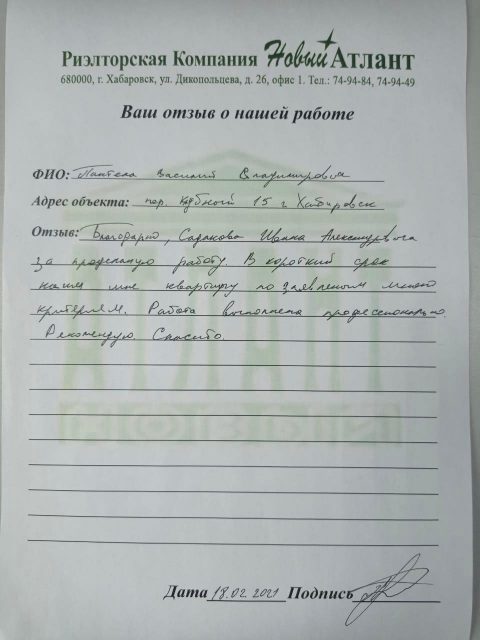 Риэлторская Компания Новый Атлант
680000, г. Хабаровск, ул. Дикопольцева, д. 26, офис 1. Тел.: 74-94-84, 74-94-49
Ваш отзыв о нашей работе
ФИО: Василий Владимирович
Адрес объекта: пер. 15 г Хабаровск
Отзыв: Благодарю, Садакова Ивана Александровича
за проделаную работу. В короткий срок
нашел мне квартиру по заявленым мною
критериям. Работа выполнена профессионально.
Рекомендую. Спасибо.
Дата 18.02.2021 Подпись